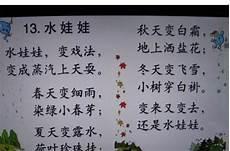 13.水娃娃
水娃娃，变戏法，
变成蒸汽上天耍。
春天变细雨，
染绿小春芽；
夏天变露水，
荷叶珍珠挂；
秋天变白霜，
地上洒盐花；
冬天变飞雪，
小树穿白褂。
变来又变去，
还是水娃娃。